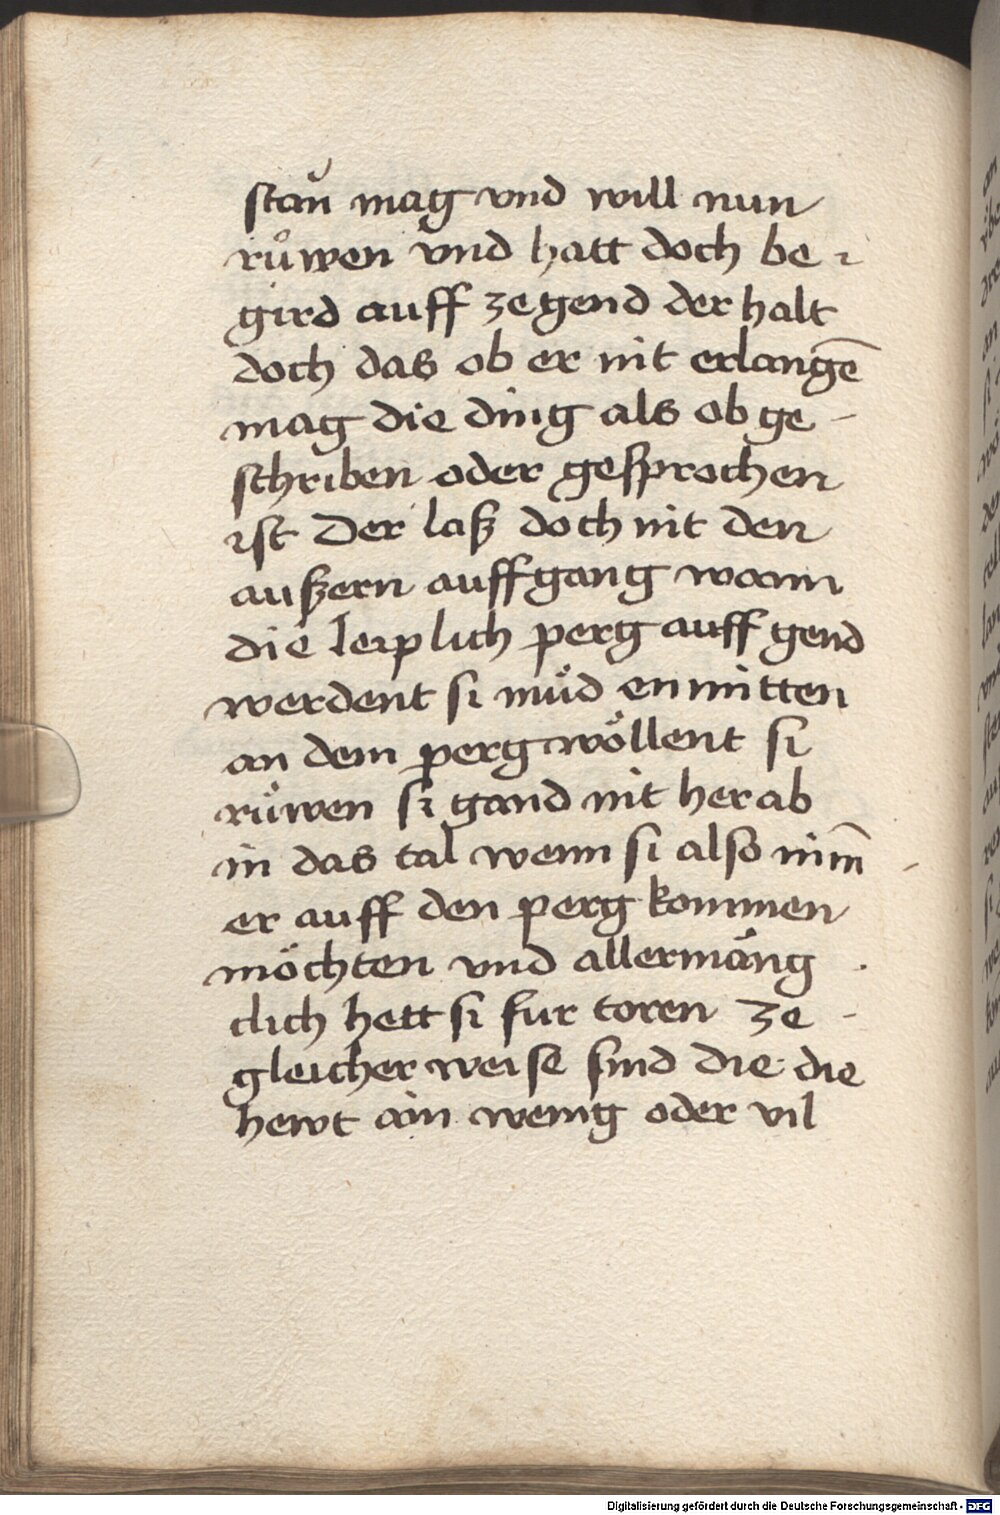 stan mag vnd will nun
ruͦwen vnd hatt doch be -
gird auff zegend der halt
doch das ob er nit erlangē
mag die ding als ob ge -
schriben oder gesprochen
ist Der laß doch nit den
außern auffgang wann
die leiplich perg auff gend
werdent si muͤd enmitten
an dem perg woͤllent si
ruͤwen si gand nit her ab
in das tal wenn si also nim̄
er auff den perg kommen
möchten vnd allermäng
clich hett si fur toren Ze -
gleicher weise sind die die
hewt ain wenig oder vil
Digitalisierung gefördert durch die Deutsche Forschungsgemeinschaft - DFG